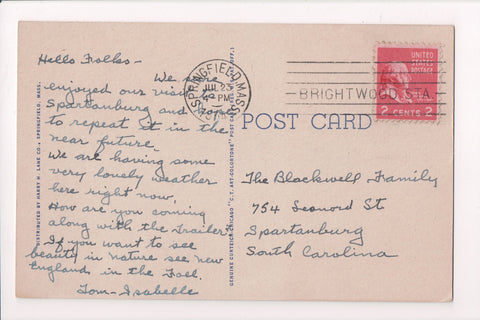 Hello Folks -
We sure
enjoyed our visit
Spartanburg and hope
to repeat it in the
near future.
We are having some
very lovely weather
here right now.
How are you coming
along with the Trailer?
If you want to see
beauty in nature see new
England in the Fall.
Tom - Isabelle
SPRINGFIELD MASS.
JUL 23
PM
BRIGHTWOOD STA.
UNITED
STATES
POSTAGE
2 CENTS 2
POST CARD
The Blackwell Family
754 Leonord St
Spartanburg
South Carolina
DISTRIBUTED BY HARRY N. LANE CO., SPRINGFIELD, MASS.
GENUINE CURTEICH-CHICAGO "C.T. ART-COLORTONE" POST CARD